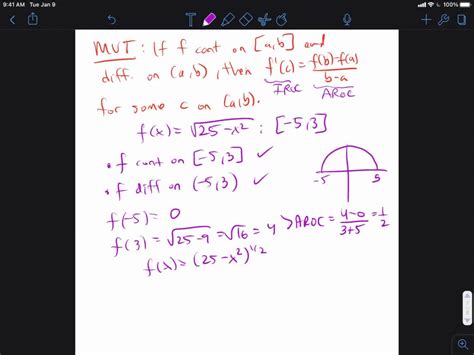 9:41 AM Tue Jan 9
100%
MVT: If f cont on [a,b] and
diff. on (a,b), then f'(c) = f(b)-f(a) / b-a
IROC AROC
for some c on (a,b).
f(x) = √25-x² : [-5,3]
• f cont on [-5,3] ✓
• f diff on (-5,3) ✓
-5 5
f(-5) = 0
f(3) = √25-9 = √16 = 4 > AROC = 4-0 / 3+5 = 1/2
f(x) = (25-x²)^1/2